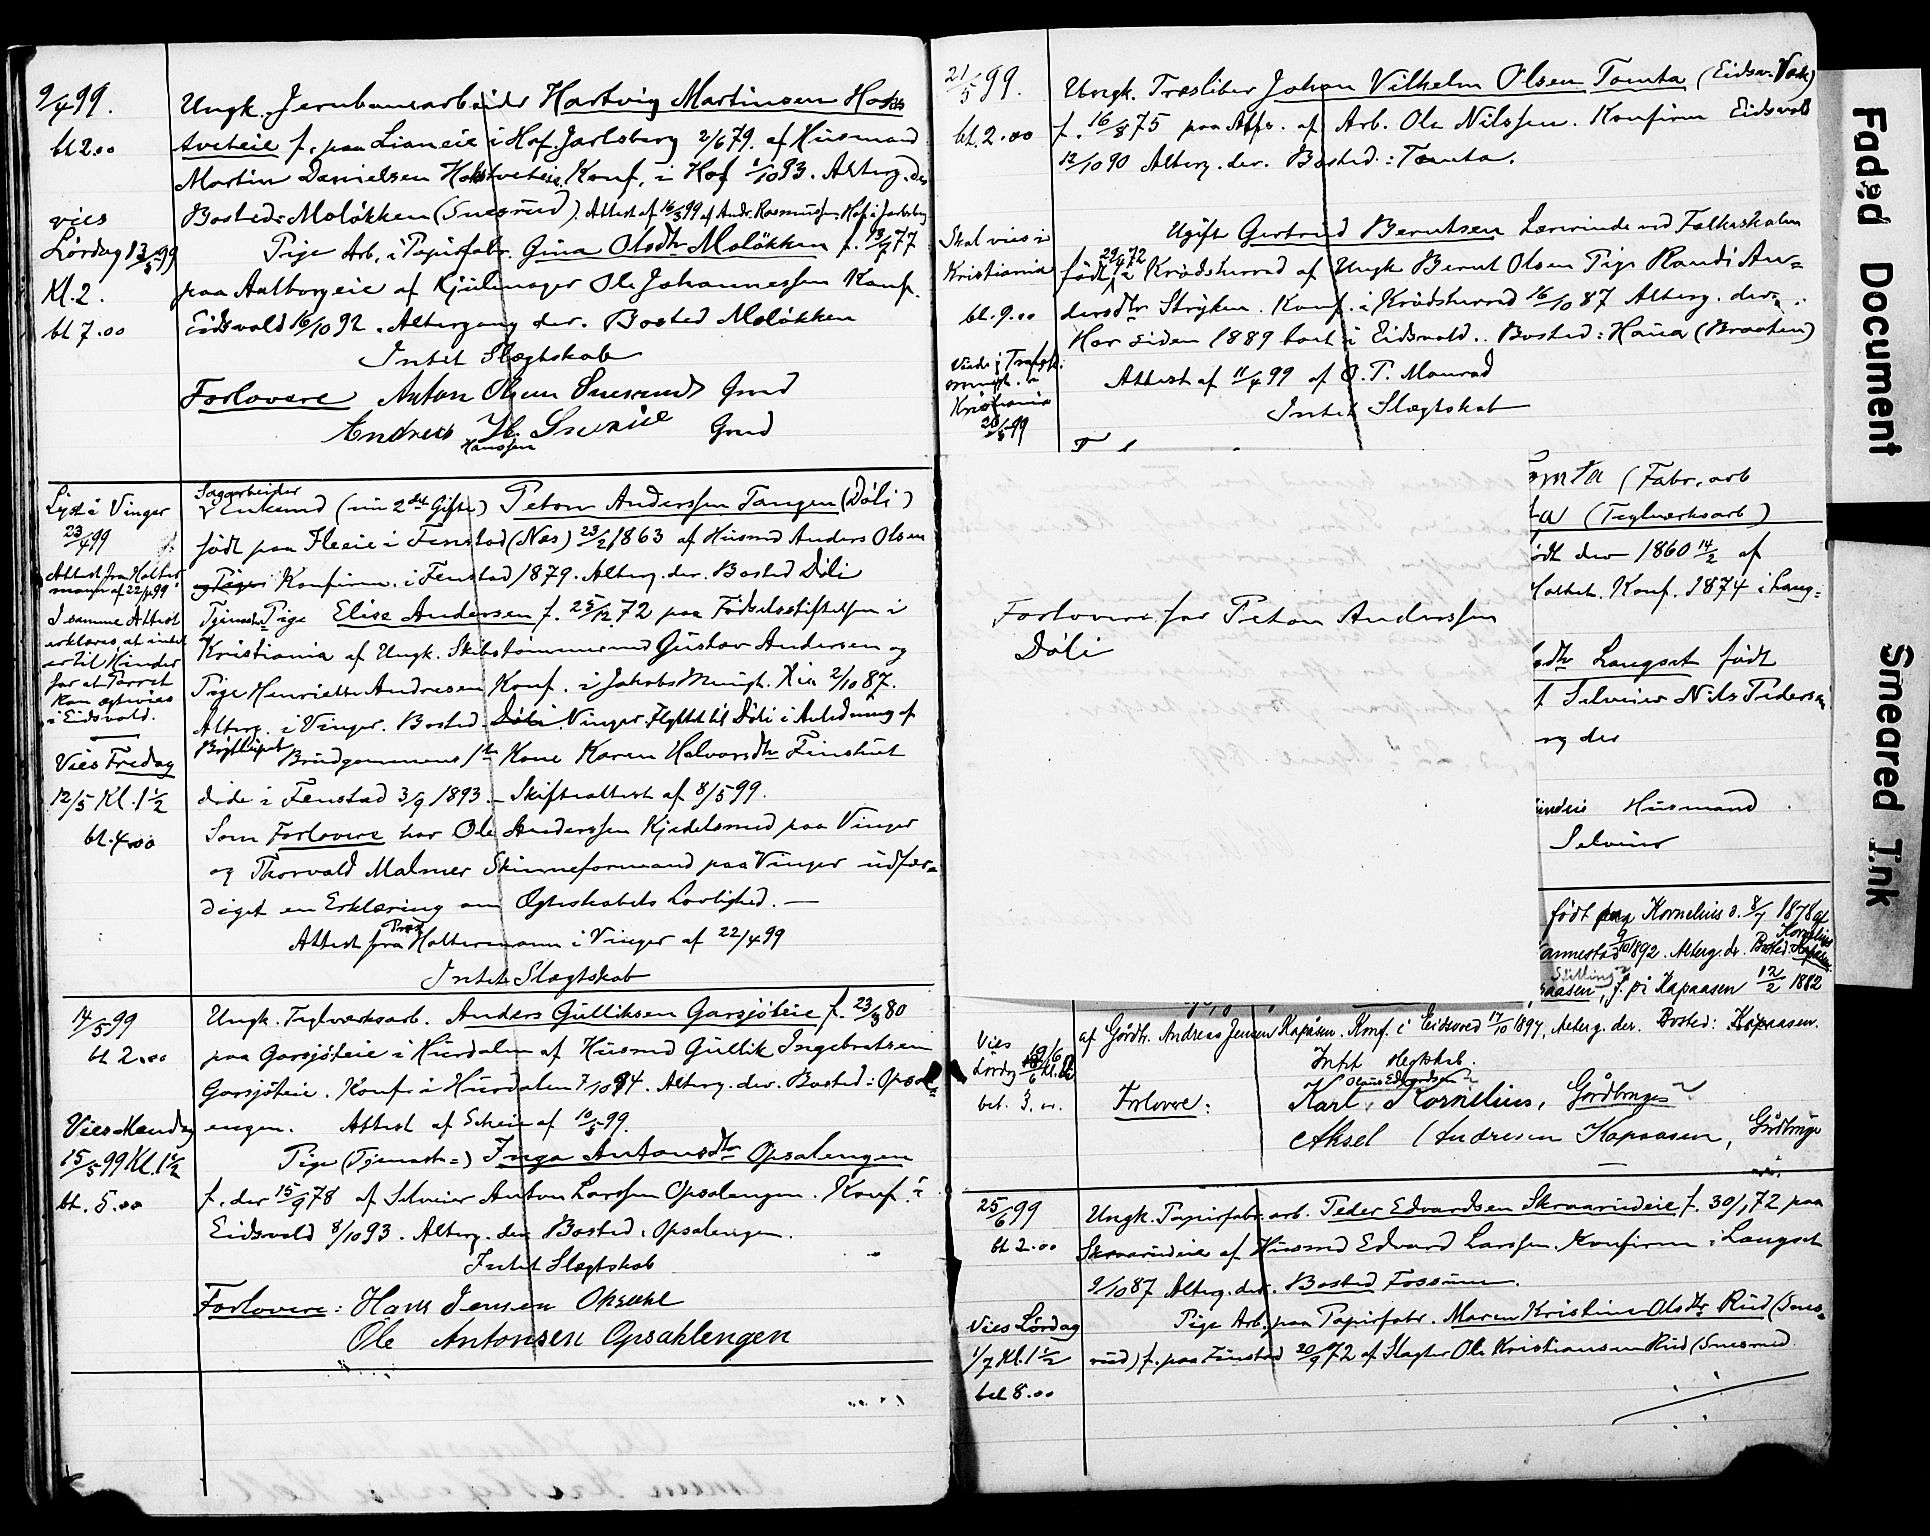 9/4 99.
bt 2.00
vies
Lördag 13/5 99
Kl. 2.
bt 7.00
Ungk. Jernbanearbeider Hartvig Martinsen Haks
tveteie f. paa Lianeie i Hof. Jarlsberg 2/6 79. af Husmand
Martin Danielsen Hakstveteie. Konf. i Hof 1/10 93. Alterg. der
Bosted: Moløkken (Sneserud). Attest af 16/3 99 af Andr. Rasmussen Hof i Jarlsberg
Pige Arb. i Papirfabr. Gina Olsdtr Moløkken f. 77
paa Aalborgeie af Hjulmager Ole Johannessen Konf.
Eidsvold 16/10 92. Altergang der. Bosted Moløkken
Intet Slægtskab
Forlovere Anton Olsen Sneserud Grd
Andreas H. Grd
Hanssen
Lyst i Vinger
23/4 99
Attest fra Halter
mann af 22/4 99
I samme Attest
erklæres, at intet
er til Hinder
for at Parret
kan ægtevies
i Eidsvold.
Vies Fredag
12/5 Kl. 1 1/2
bt. 4.00
Sagarbeider
Enkemd (nu 2det Gifte) Peton Anderssen Tangen (Døli)
født paa Fleeie i Fenstad (Næs) 23/2 1863 af Husmd Anders Olsen
og Pige Konfirm. i Fenstad 1879. Alterg. der. Bosted Døli
Tjeneste Pige Elise Andersen f. 25/12 72 paa Fødselsstiftelsen i
Kristiania af Ungk. Skibstømmermd Gustav Andersen og
Pige Henriette Andresen Konf. i Jakobs Menigh. Xia 2/10 87.
Alterg. i Vinger. Bosted Døli Vinger. Flyttet til Døli i Anledning af
Bryllupet Brudgommens 1ste Kone Karen Halvorsdtr Finstut
døde i Fenstad 3/9 1893. Skifteattest af 8/5 99.
Som Forlovere har Ole Anderssen Kjedelsmed paa Vinger
og Thorvald Malmer Skinneformand paa Vinger udfær=
diget en Erklæring om Ægteskabets Lovlighed.
Attest fra Præst Haltermann i Vinger af 22/4 99
Intet Slægtskab
14/5 99
bt 2.00
Vies Mandag
15/5 99 Kl. 1 1/2
bt. 5.00
Ungk. Teglværksarb. Anders Gulliksen Garsjøteie f. 23/3 80
paa Garsjøteie i Hurdalen af Husmd Gullik Ingebretsen
Garsjøteie. Konf. i Hurdalen 7/10 94. Alterg. der. Bosted: Opsal=
engen. Attest af Scheie af 10/5 99.
Pige (Tjeneste=) Inga Antonsdtr Opsalengen
f. der 15/9 78 af Selveier Anton Larssen Opsalengen. Konf. i
Eidsvold 8/10 93. Alterg. der. Bosted: Opsalengen.
Intet Slægtskab
Forlovere: Hans Jensen Opsahl
Ole Antonsen Opsahlengen
21/5 99.
bt. 2.00
Skal vies i
Kristiania
bt. 9.00
Viede i Trefoldh.
menigh. i
Kristiania
99
Ungk. Træsliber Johan Vilhelm Olsen Tomta (Eidsv. Værk)
f. 16/8 75 paa af Arb. Ole Nilssen. Konfirm Eidsvold
12/10 90 Alterg. der. Bosted: Tomta.
Ugift Gertrud Berntsen Lærerinde ved Folkeskolen
født 29/4 72 i Krødsherred af Ungk Bernt Olsen Pige Randi An=
dersdtr Stryken. Konf. i Krødsherred 16/10 87 Alterg. der.
Har siden 1889 boet i Eidsvold. Bosted: Haua (Braaten)
Attest af 11/4 99 af O. P. Monrad
Intet Slægtskab
Forlovere for Peton Anderssen
Døli
omta (Fabr. arb
ta (Teglværksarb)
ødt der 1860 14/2 af
Holseth. Konf. 1874 i Lang=
sdtr Langset født
f Selveier Nils Peders
rg der
Husmand
Selveier
født paa Kornelius ø. 8/7 1878 af
annestad 9/10 1892. Alterg. der. Bosted: Kornelius
Kapaasen
Sætling
raasen, f. på Kapaasen 12/2 1882
Vies
Lördag
bet. 3.00
af Gårdbr. Andreas Jensen Kapåsen. Konf. i Eidsvold 17/10 1897, Alterg. der. Bosted: Kapaasen.
Intet slegtskab.
Forlovere: Karl Olaus Edvardsen Kornelius, Gårdbruger
Aksel Andresen Kapaasen, Gårdbruger
25/6 99
bt 2.00
Vies Lördag
1/7 Kl. 1 1/2
bet 8.00
Ungk. Papirfabr. arb. Peder Edvardsen Skraarudeie f. 30/1 72 paa
Skraarudeie af Husmd Edvard Larssen. Konfirm i Langset
9/10 87 Alterg. der. Bosted Fossum.
Pige Arb. paa Papirfabr. Maren Kristine Olsdtr Rud (Snes=
rud) f. paa Finstad 20/9 72 af Slagter Ole Kristiansen Rud (Snesrud
Faded Document
Smeared Ink